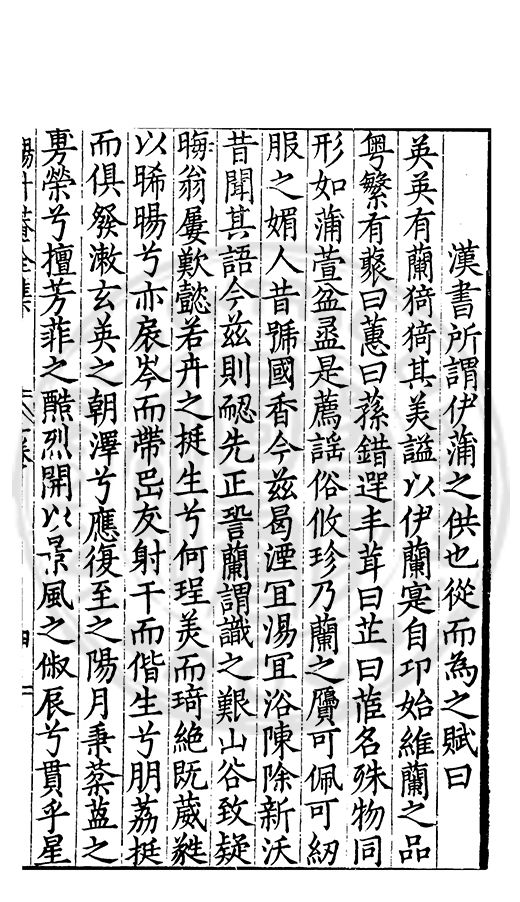 漢書所謂伊蒲之供也從而為之賦曰
英英有蘭猗猗其美謚以伊蘭寔自卭始維蘭之品
粤繁有藂曰蕙曰蓀錯遝丰茸曰芷曰茝名殊物同
形如蒲萱盆盎是薦謡俗攸珍乃蘭之贋可佩可紉
服之媚人昔號國香今兹曷湮冝湯冝浴陳除新沃
昔聞其語今兹則覿先正訔蘭謂識之艱山谷致疑
晦翁屢歎懿若卉之挺生兮何珵美而琦絶既葳蕤
以晞暘兮亦扆岑而帶岊友射干而偕生兮朋荔挺
而俱發漱玄英之朝澤兮應復至之陽月秉蔡葢之
專榮兮擅芳菲之酷烈開以景風之俶辰兮貫乎星